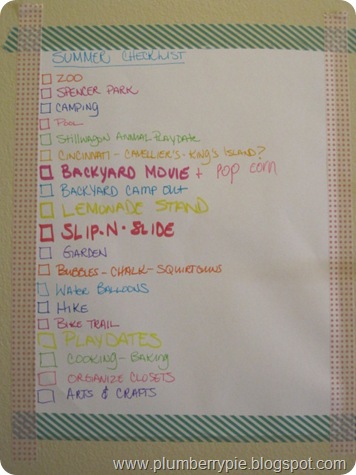 SUMMER CHECKLIST
ZOO
SPENCER PARK
CAMPING
POOL
STILLWAGON ANNUAL PLAYDATE
CINCINNATI - CAVELLIER'S - KING'S ISLAND?
BACKYARD MOVIE + POP CORN
BACKYARD CAMP OUT
LEMONADE STAND
SLIP-N-SLIDE
GARDEN
BUBBLES - CHALK - SQUIRTGUNS
WATER BALLOONS
HIKE
BIKE TRAIL
PLAYDATES
COOKING - BAKING
ORGANIZE CLOSETS
ARTS & CRAFTS
www.plumberrypie.blogspot.com